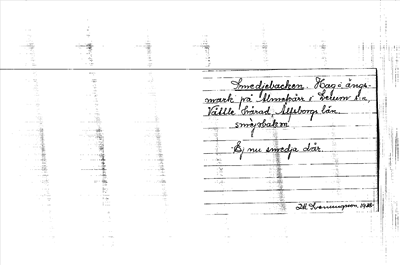 Smedjebacken. Hag o. ängs-
mark på Almekärr i Lerum s:n,
Vättle härad, Älfsborgs län.
smejebaken
Ej nu smedja där.
1922